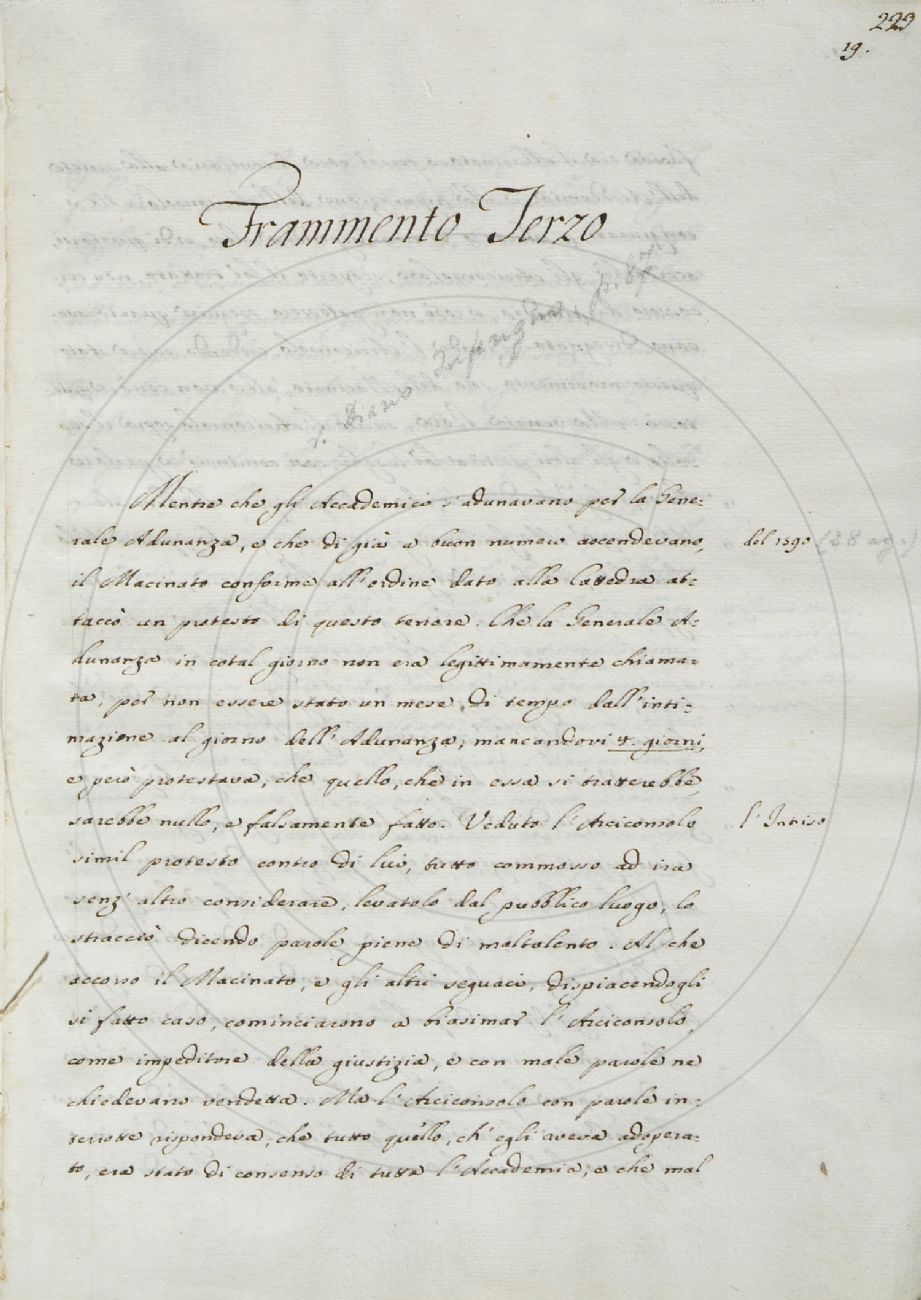 223
19.
Frammento Terzo
Mentre che gli Accademici s'adunavano per la Gene:
rale Adunanza, e che di già a buon numero ascendevano,
del 1590 (28 ag.)
il Macinato conforme all'ordine dato alla Cattedra at:
taccò un protesto di questo tenore. Che la Generale A:
dunanza in cotal giorno non era legittimamente chiama:
ta, per non essere stato un mese di tempo dall'inti:
mazione al giorno dell'Adunanza, mancandovi 4. giorni,
e però protestava, che quello, che in essa si tratterebbe
sarebbe nullo, e falsamente fatto. Veduto l'Arciconsolo
l'Intriso
simil protesto contro di lui, tutto commosso ad ira
senz'altro considerare, levatolo dal pubblico luogo, lo
stracciò dicendo parole piene di maltalento. Al che
accorso il Macinato, e gli altri seguaci, dispiacendogli
sì fatto caso, cominciarono a biasimar l'Arciconsolo,
come impeditore della giustizia, e con male parole ne
chiedevano vendetta. Ma l'Arciconsolo con parole in:
terrotte rispondeva, che tutto quello, ch'egli aveva adopera:
to, era stato di consenso di tutta l'Accademia; e che mal